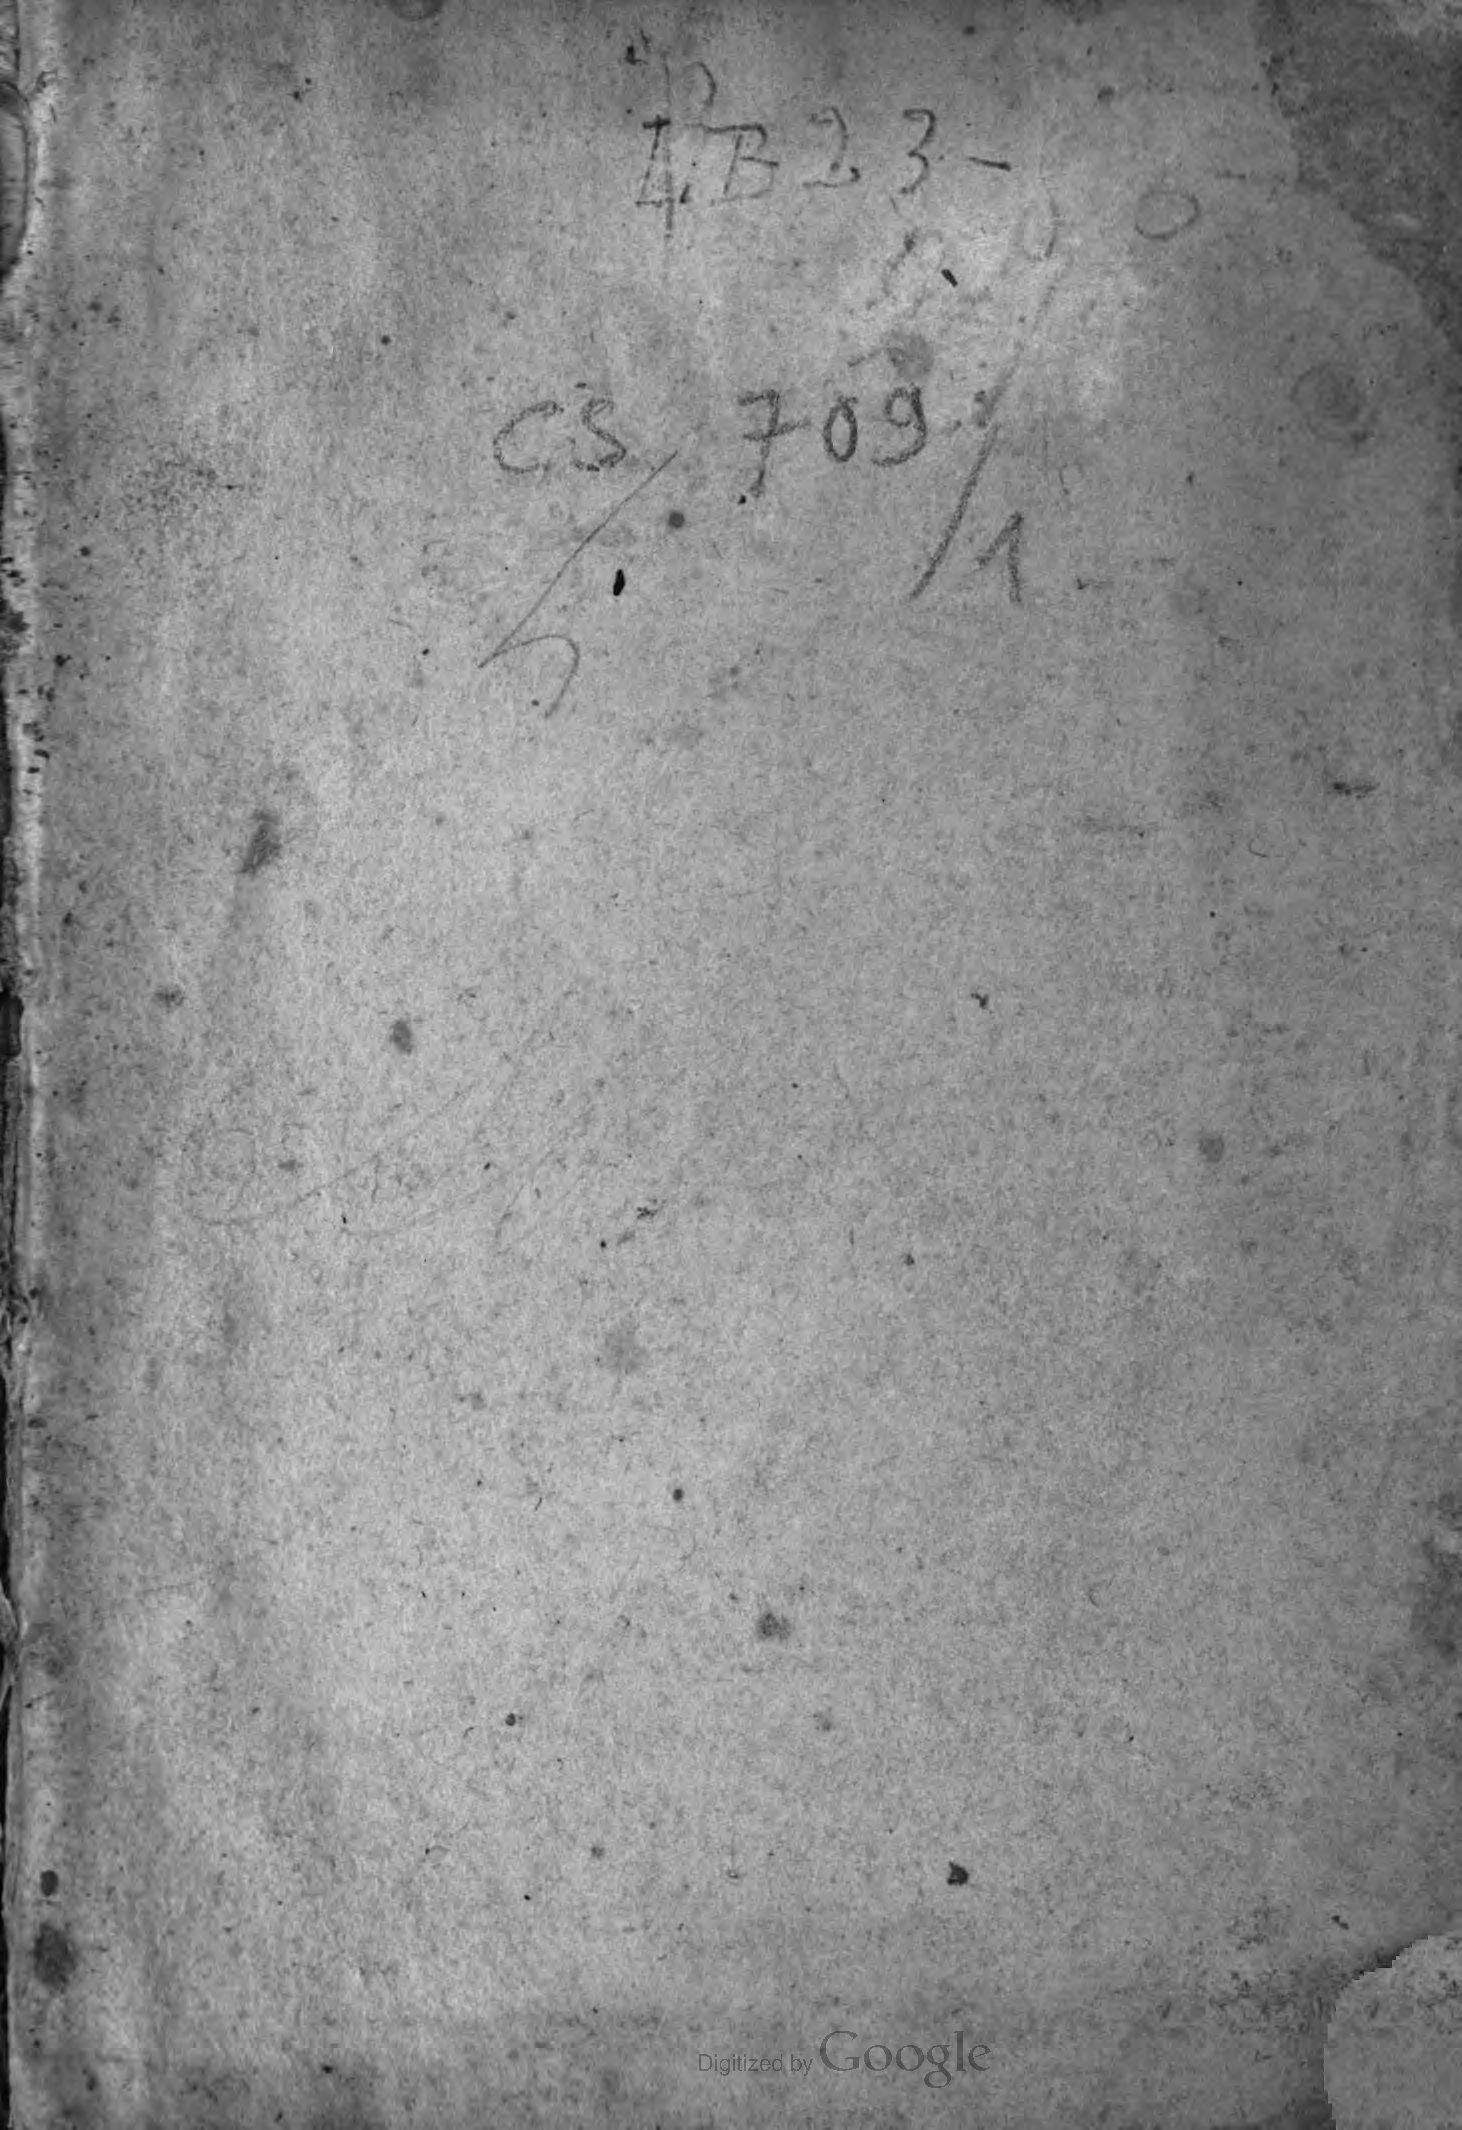 I.B 23-
CS 709.
/1
Digitized by Google